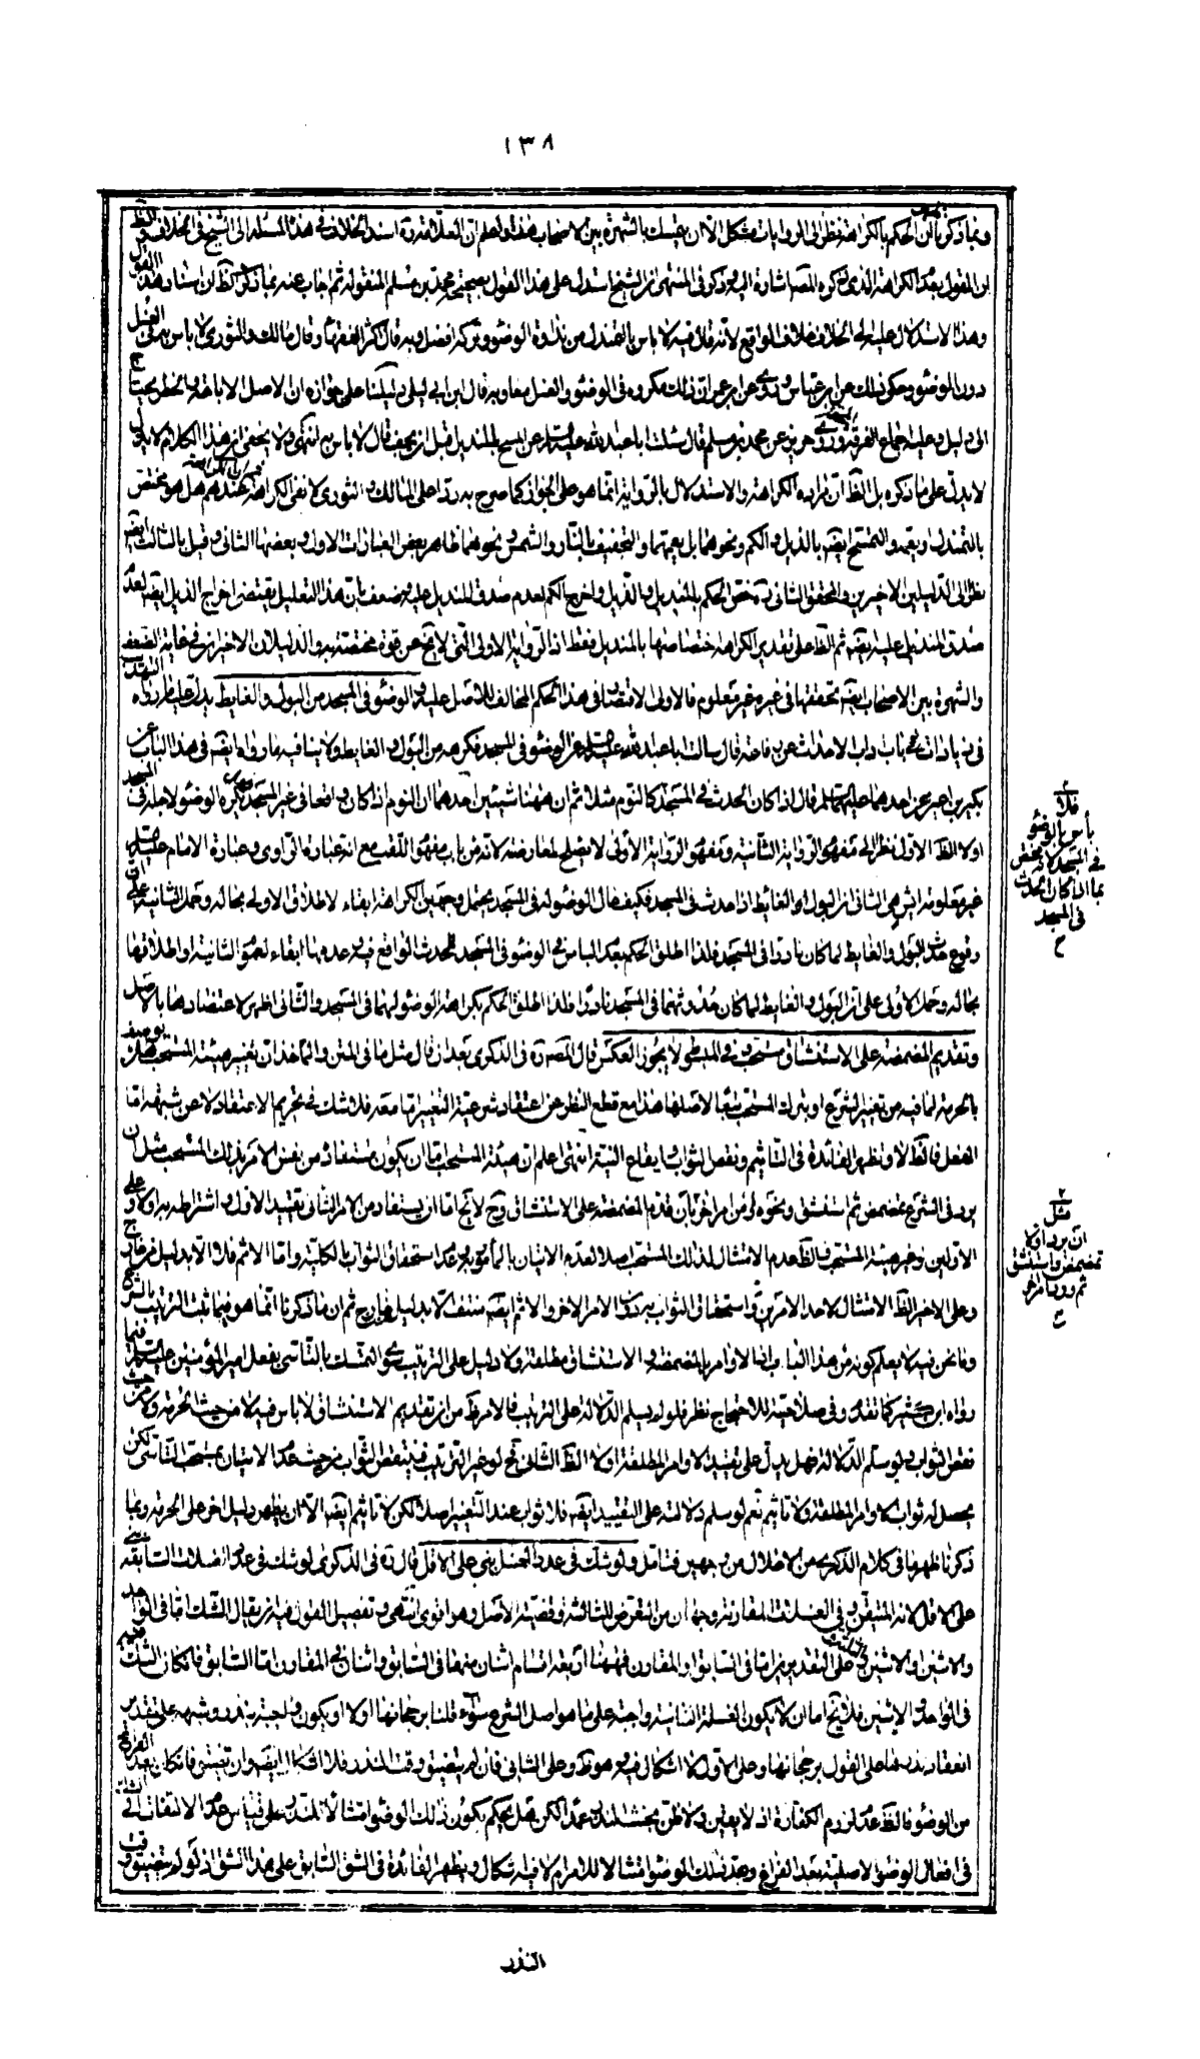 ١٣٨
وبما ذكرنا ان الحكم بالكراهة نظرا الى الروايات مشكل الا ان يتمسك بالشهرة بين الاصحاب هذا واعلم ان العلامة ره اسند الخلاف في هذا المسئلة الى الشيخ في الخلاف و
ان القول بعدم الكراهة الذي ذكره المصـ اشارة اليه وذكر في المنتهى ان الشيخ استدل على هذا القول بصحيحة محمد بن مسلم المنقولة ثم اجاب عنه بما ذكر الظ ان اسناد هذا القول
وهذا الاستدلال عليه الى الخلاف خلاف الواقع لانه قال فيه لا باس بالتمندل من نداوة الوضوء وتركه افضل وبه قال اكثر الفقهاء وقال مالك والثوري لا باس به في الغسل
دون الوضوء وحكى ذلك عن ابن عباس وروى عن ابن عمر ان ذلك مكروه في الوضوء والغسل معا وبه قال ابن ابي ليلى دليلنا على جوازه ان الاصل الاباحة والحظر يحتاج
الى دليل وعليه اجماع الفرقة وروى حريز عن محمد بن مسلم قال سئلت ابا عبد الله عليه السلم عن المسح بالمنديل قبل ان يجف قال لا باس به انتهى ولا يخفى ان هذا الكلام
لا يدل على ما ذكره بل الظ ان مراده الكراهة والاستدلال بالرواية انما هو على الجواز كما صرح به ردا على المالك والثوري لا نفى الكراهة هل هو مختص
بالتمندل او يعمه والتمسح ايضه بالذيل والكم ونحوهما بل يعمهما والتجفيف بالنار والشمس ونحوهما ظاهر بعض العبارات الاول وبعضها الثاني وقيل بالثالث ايضه
نظرا الى الدليلين الاخيرين والمحقق الثاني ره خص الحكم بالمنديل والذيل واخرج الكم لعدم صدق المنديل عليه وضعف بان هذا التعليل يقتضي اخراج الذيل ايضه لعدم
صدق المنديل عليه ايضه ثم الظ على تقدير الكراهة اختصاصها بالمنديل فقط اذ الرواية الاولى التي لا يخ عن قوة مختصة به والدليلان الاخيران في غاية الضعف
والشهرة بين الاصحاب ايضه تحققها في غيره غير معلوم فالاولى الاقتصار في هذا الحكم المخالف للاصل عليه والوضوء في المسجد من البول والغايط يدل عليه ما رواه التهذيب
في زيادات باب اداب الاحداث عن رفاعة قال سالت ابا عبد الله عليه السلم عن الوضوء في المسجد فكرهه من البول والغايط ولا ينافيه ما رواه ايضه في هذا الباب عن
بكير بن اعين عن احدهما عليهما السلم قال اذا كان الحدث في المسجد كالنوم مثلا ثم ان ههنا شيئين احدهما ان النوم اذا كان واقعا في غير المسجد يكره الوضوء لاجله في المسجد
او لا الظ الاول نظرا الى مفهوم الرواية الثانية ومفهوم الرواية الاولى لا يصلح لمعارضته لانه من باب مفهوم اللقب مع انه عبارة الراوي وعبارة الامام عليه السلم
غير معلومة الثاني ان البول او الغائط اذا حدث في المسجد فكيف حال الوضوء له في المسجد يحتمل وجهين الكراهة ابقاء لاطلاق الاولى بحاله وحمل الثانية على ان
وقوع حدث البول والغايط لما كان نادرا في المسجد فلذا اطلق الحكم بعدم الباس في الوضوء في المسجد للحدث الواقع فيه وعدمها ابقاء لعموم الثانية واطلاقها
بحاله وحمل الاولى على ان البول والغايط لما كان حدوثهما في المسجد نادرا فلذا اطلق الحكم بكراهة الوضوء لهما في المسجد والثاني اظهر لاعتضادها بالاصل
وتقديم المضمضة على الاستنشاق مستحب وفي المبسوط لا يجوز العكس قال المصـ ره في الذكرى بعد ان قال مثل ما في المتن والماخذ ان تغيير هيئة المستحب هل يوصف
بالحرمة لما فيه من تغيير الشرع او بترك المستحب تبعا لاصلها هذا مع قطع النظر عن اعتقاد شرعية التغيير اما معه فلا شك في تحريم الاعتقاد لا عن شبهة اما
الفعل فالظ لا وتظهر الفائدة في التاثيم ونقص الثواب وايقاع النية انتهى اعلم ان هيئة المستحب اما ان يكون مستفادا من نفس الامر بذلك المستحب مثل ان
يرد في الشرع تمضمض ثم استنشق ونحوه او من امر اخر بان قدم المضمضة على الاستنشاق وح لا يخ اما ان يستفاد من الامر الثاني تقييد الاول واشتراطه به او لا وعلى
الاولين لو غير هيئة المستحب فالظ عدم الامتثال لذلك المستحب اصلا لعدم الاتيان بالمامور به وعدم استحقاق الثواب بالكلية واما الاثم فلا الا بدليل من خارج
وعلى الاخير الظ الامتثال لاحد الامرين واستحقاق الثواب به دون الامر الاخر والاثم ايضه منتف الا بدليل خارج ثم ان ما ذكرنا انما هو فيما ثبت الترتيب بالشرع
وما نحن فيه لا يعلم كونه من هذا الباب اذ الاوامر بالمضمضة والاستنشاق مطلقة ولا دليل على الترتيب سوى التمسك بالتاسي بفعل امير المؤمنين عليه السلم فيما
رواه ابن كثير كما تقدم وفي صلاحيته للاحتجاج نظر فلو لم يسلم الدلالة على الترتيب فالامر كما من ان تقديم الاستنشاق لا باس فيه لا من حيث الحرمة ولا من حيث
نقص الثواب ولو سلم الدلالة فهل يدل على تقييد الاوامر المطلقة او لا الظ الثاني فح لو غير الترتيب فينقص الثواب من حيث عدم الاتيان بمستحب التاسي لكن
يحصل له ثواب الاوامر المطلقة ولا تاثيم نعم لو سلم دلالته على التقييد ايضه فلا ثواب عند التغيير اصلا لكن لا تاثيم ايضه الا ان يظهر دليل اخر على الحرمة وبما
ذكرنا ظهر ما في كلام الذكرى من الاخلال من وجهين فتامل ولو شك في عدد الغسل بنى على الاقل قال ره في الذكرى لو شك في عدد الغسلات السابقة بنى
على الاقل لانه المتيقن وفي الغسلة المقارنة وجهان من التعرض للثالثة وقضية الاصل وهو اقوى انتهى وتفصيل القول فيه ان يقال الشك اما في الواحد
والاثنين والاثنين والثالث وعلى التقديرين اما في السابق او المقارن فههنا اربعة اقسام اثنان منها في السابق واثنان في المقارن اما السابق فان كان الشك فيه
في الواحد والاثنين فلا يخ اما ان لا يكون الغسلة الثانية واجبة على ما هو اصل الشرع سواء قلنا برجحانها او لا او يكون واجبة بنذر وشبهه على تقدير
انعقاد نذرها على القول برجحانها وعلى الاول لا اشكال فيه وهو ظ وعلى الثاني فان لم يتضيق وقت النذر فلا اشكال ايضه وان تضيق فان كان بعد الفراغ
من الوضوء فالظ عدم لزوم الكفارة اذ لا يقين ولا ظن بحنث النذر عمدا لكن هل يحكم بكون ذلك الوضوء امتثالا للنذر على قياس عدم الالتفات الى الشك
في افعال الوضوء الاصلية بعد الفراغ وعد ذلك الوضوء امتثالا للامر ام لا فيه اشكال ويظهر الفائدة في الشق السابق على هذا الشق اذ لو لم يتضيق وقت
النذر
فلا
بأس بالوضوء
في المسجد لا يختص
بما اذا كان الحدث
في المسجد
ح
٢
مثل
ان يرد اولا
تمضمض واستنشق
ثم ورد امر اخر
ح